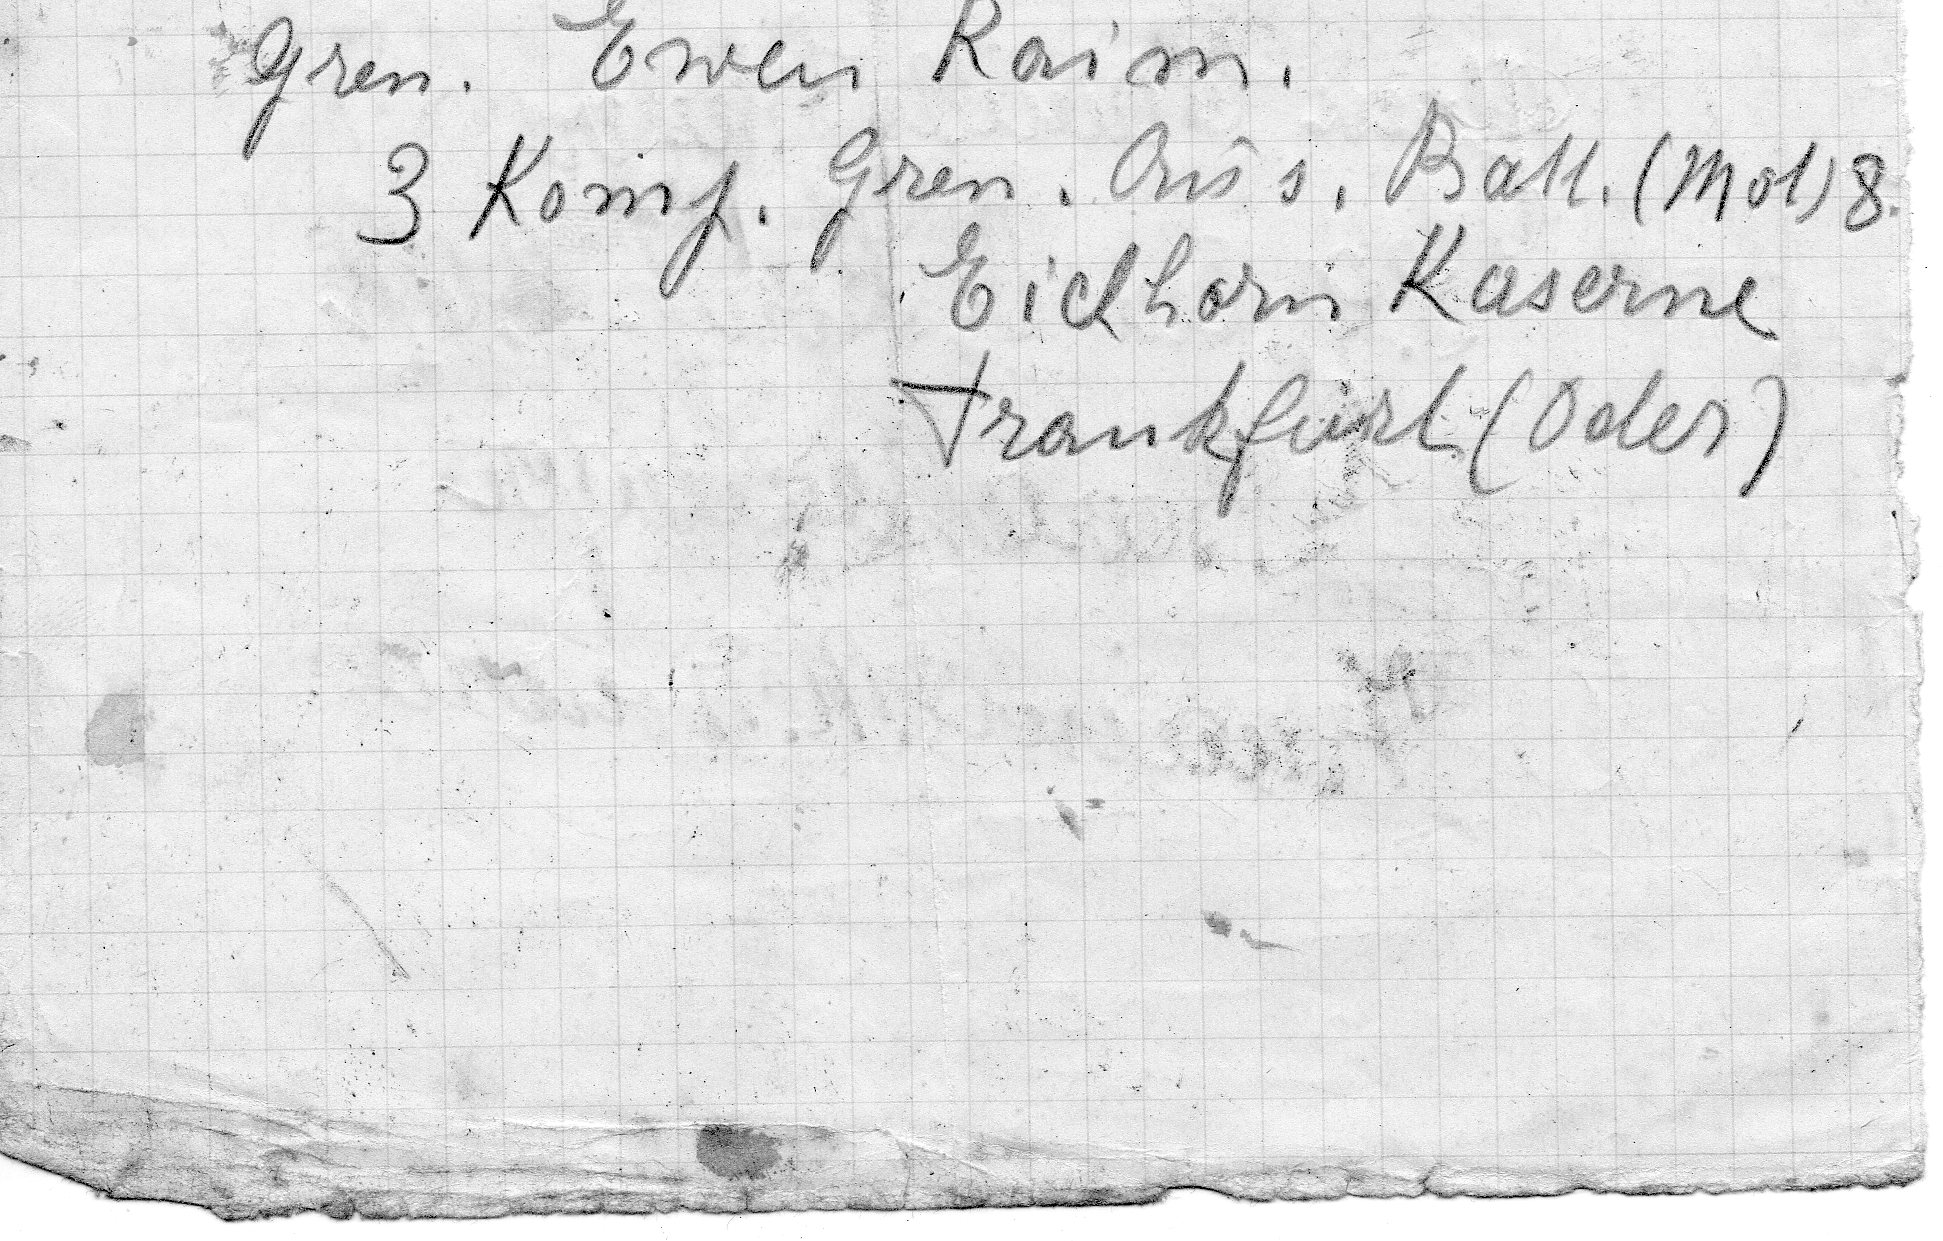 Gren. Ewen Raim.
3 Komp. Gren. Aus. Batl. (Mot) 8.
Eichhorn Kaserne
Frankfurt (Oder)